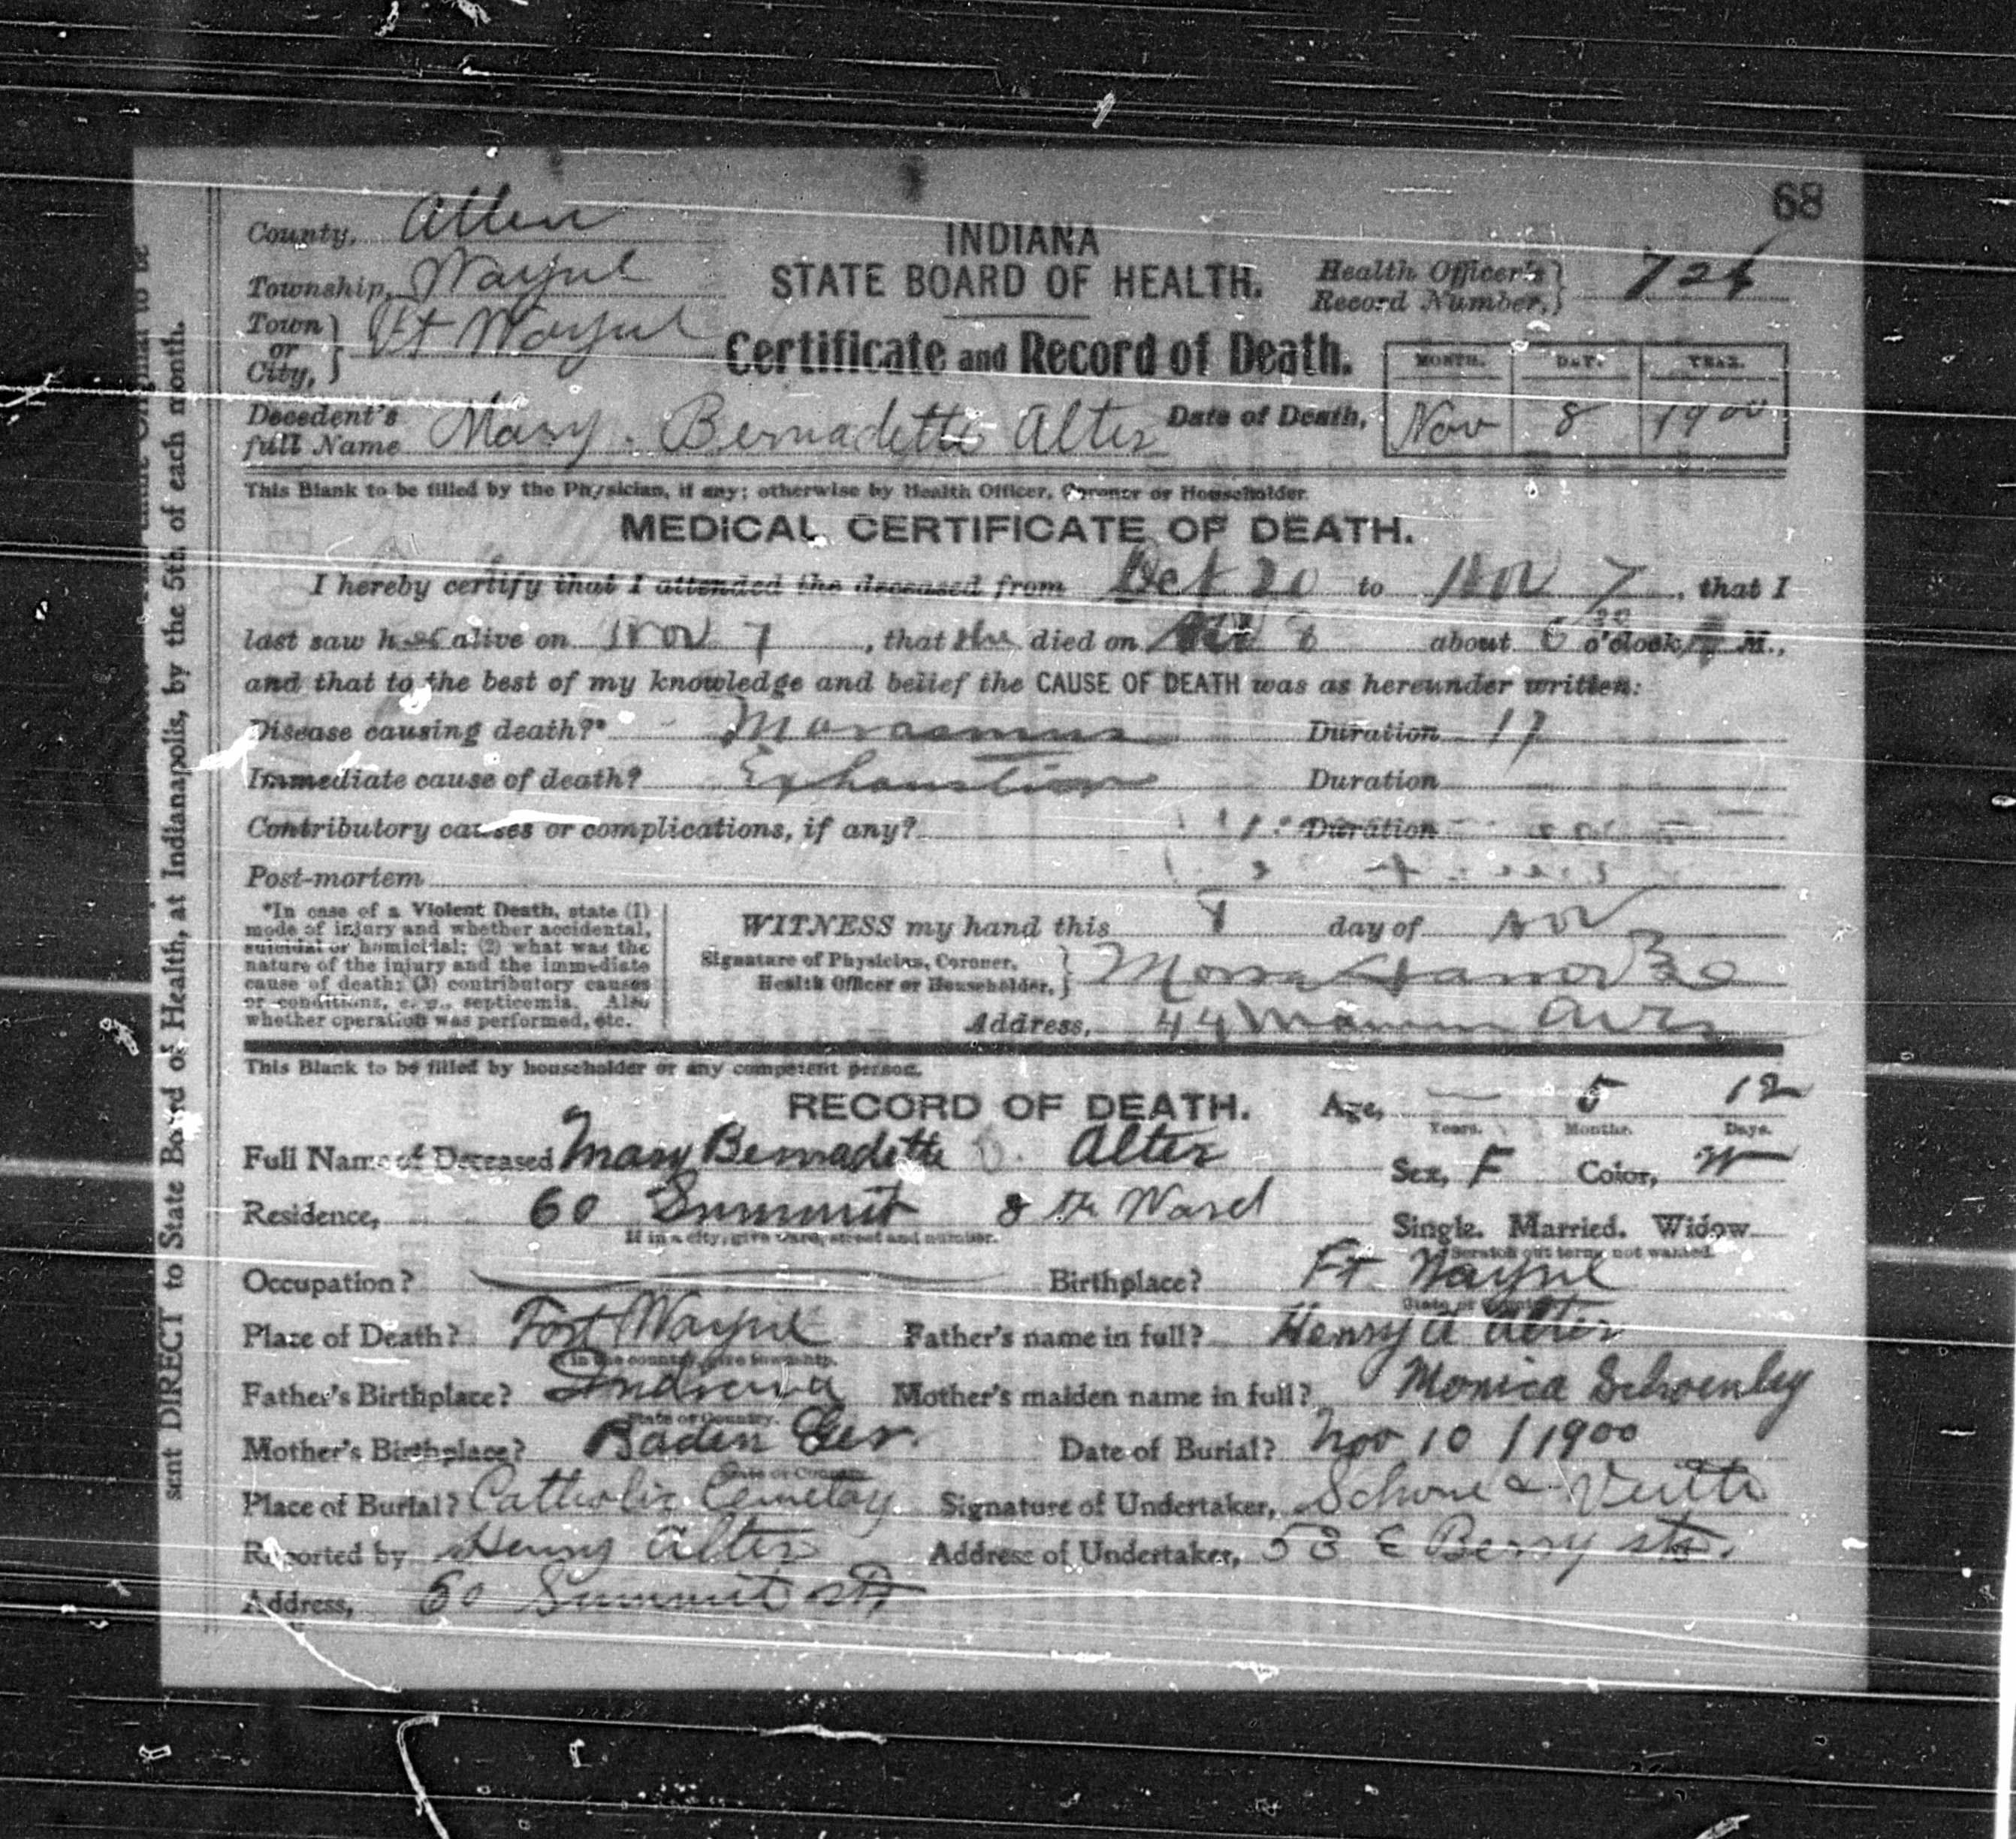 68
County, Allen
INDIANA
Township, Wayne
STATE BOARD OF HEALTH.
Health Officer's Record Number, 726
Town or City, Ft Wayne
Certificate and Record of Death.
MONTH. DAY. YEAR.
Decedent's full Name Mary Bernadette Alter Date of Death, Nov 8 1900
This Blank to be filled by the Physician, if any; otherwise by Health Officer, Coroner or Householder.
MEDICAL CERTIFICATE OF DEATH.
I hereby certify that I attended the deceased from Oct 20 to Nov 7, that I
last saw her alive on Nov 7, that she died on Nov 8 about 6 30 o'clock, M.,
and that to the best of my knowledge and belief the CAUSE OF DEATH was as hereunder written:
Disease causing death?* Marasmus Duration 17
Immediate cause of death? Exhaustion Duration
Contributory causes or complications, if any? Duration
Post-mortem
*In case of a Violent Death, state (1)
mode of injury and whether accidental,
suicidal or homicidal; (2) what was the
nature of the injury and the immediate
cause of death; (3) contributory causes
or conditions, e. g., septicemia. Also
whether operation was performed, etc.
WITNESS my hand this 8 day of Nov
Signature of Physician, Coroner,
Health Officer or Householder,
Address, 44
This Blank to be filled by householder or any competent person.
RECORD OF DEATH. Age, — 5 12
Years. Months. Days.
Full Name of Deceased Mary Bernadette Alter Sex, F Color, W
Residence, 60 Summit 8th Ward Single. Married. Widow
If in a city, give ward, street and number. Scratch out terms not wanted.
Occupation? Birthplace? Ft Wayne
State or Country.
Place of Death? Fort Wayne Father's name in full? Henry A Alter
If in the country, give township.
Father's Birthplace? Indiana Mother's maiden name in full? Monica Schoenley
State or Country.
Mother's Birthplace? Baden Ger. Date of Burial? Nov 10 / 1900
State or Country
Place of Burial? Catholic Cemetay Signature of Undertaker, Schone & Veith
Reported by Henry Alter Address of Undertaker, 53 E Berry str.
Address, 60 Summit str
sent DIRECT to State Board of Health, at Indianapolis, by the 5th of each month.